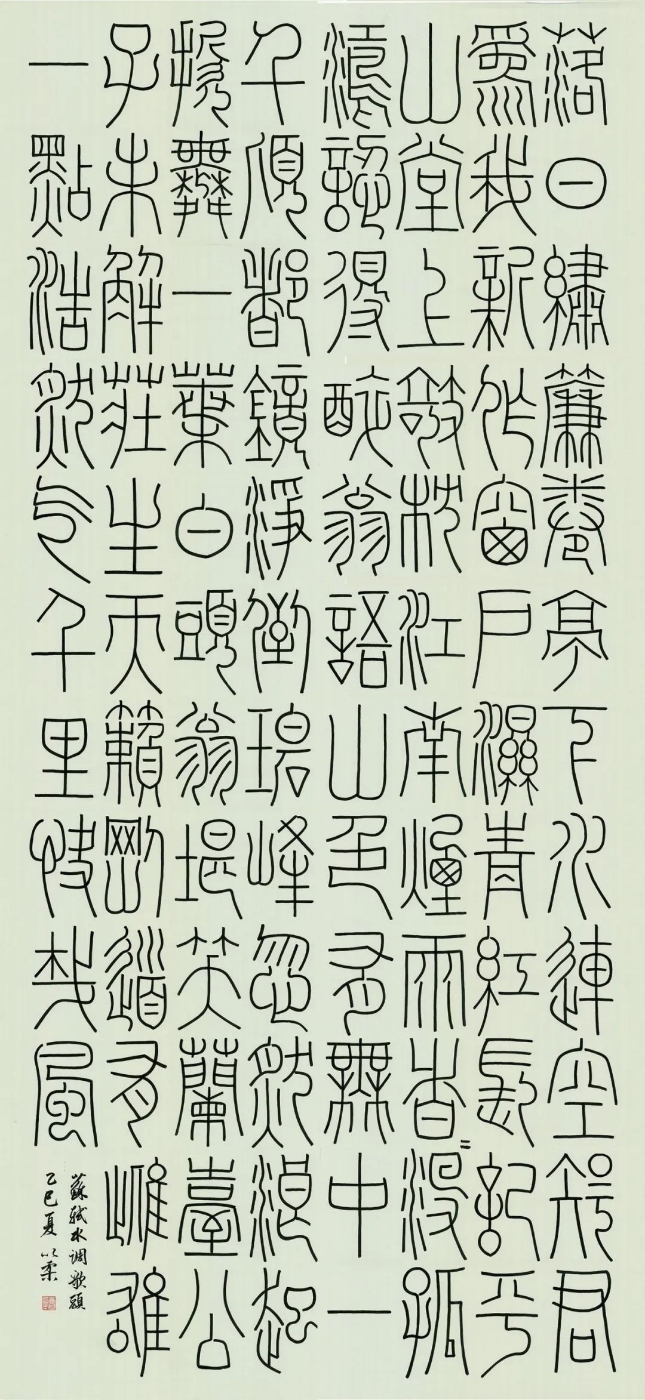 落日繡簾卷亭下水連空知君
爲我新作窗戶濕青紅長記平
山堂上敧枕江南煙雨杳〻沒孤
鴻認得醉翁語山色有無中一
千頃都鏡淨倒碧峰忽然浪起
掀舞一葉白頭翁堪笑蘭臺公
子未解莊生天籟剛道有雌雄
一點浩然气千里快哉風
蘇軾水调歌頭
乙巳夏